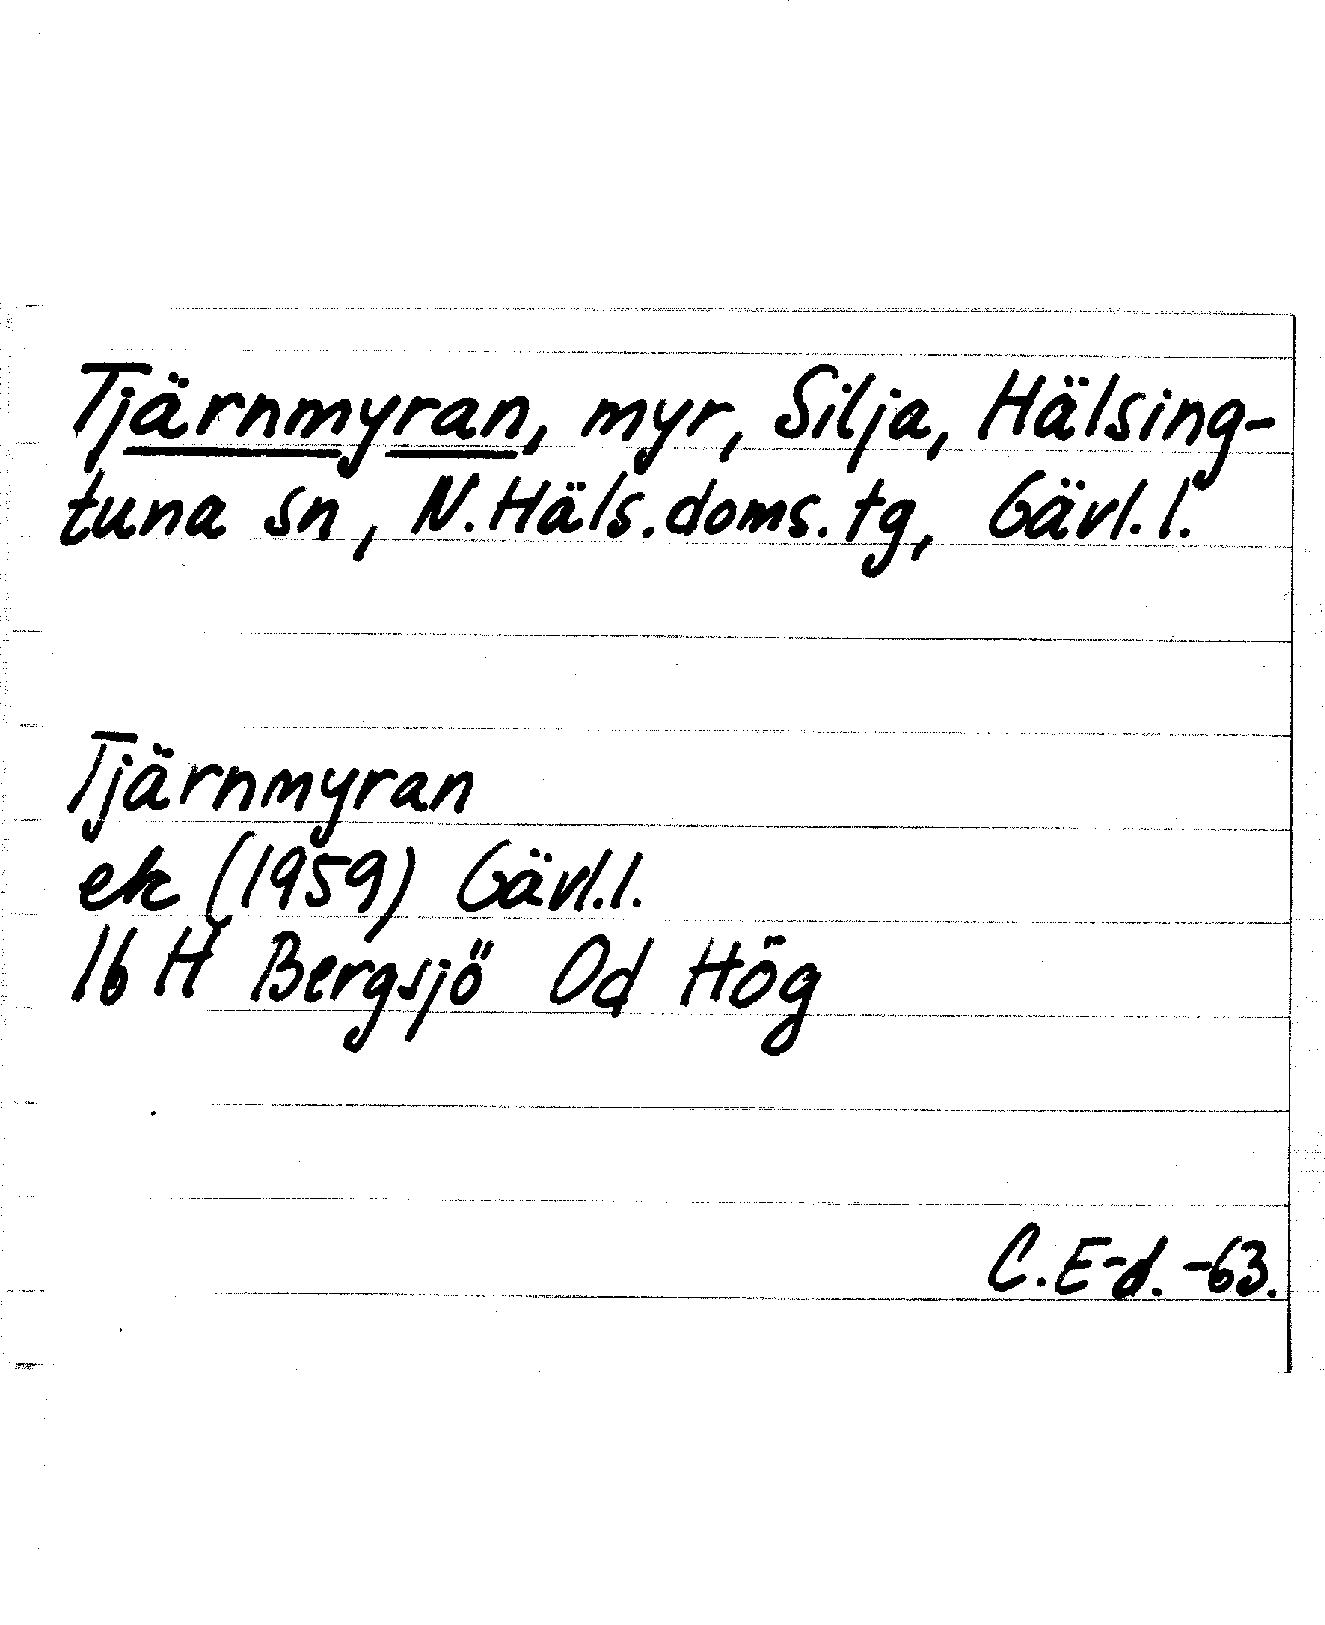 Tjärnmyran, myr, Silja, Hälsing-
tuna sn, N. Häls. doms. tg, Gävl. l.
Tjärnmyran
ek (1959) Gävl. l.
16 H Bergsjö Od Hög
C. E-d. -63.